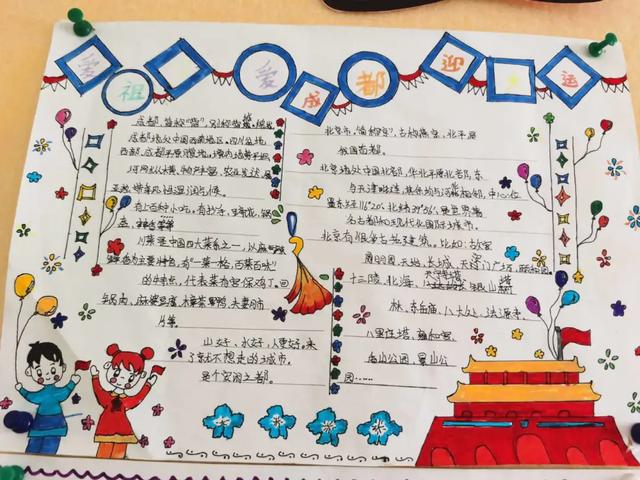 爱祖国 爱成都 迎大运
成都市,简称"蓉",别称蓉城,锦城
成都地处中国西南地区、四川盆地
西部、成都平原腹地,境内地势平坦、
河网纵横、物产丰富、农业发达,属
亚热带季风性湿润气候。
川菜是中国四大菜系之一,以麻辣
为主要特色,有"一菜一格,百菜百味"
的美誉,代表菜为宫保鸡丁。回
锅肉、麻婆豆腐、樟茶鸭、夫妻肺
片等。
山好、水好,人更好,来
了就不想走的城市。
是个安闲之都。
北京市,简称"京",古称燕京,北平,是
我国首都。
北京地处中国北部、华北平原北部,东
与天津毗连,其余均与河北相邻,中心位
东经116°20′、北纬39°56′,是世界著
名古都和现代化国际城市。
北京有很多古老建筑。比如:故宫
圆明园、天坛、长城、天安门广场、颐和园
十三陵、北海、
林、东岳庙、八大处、法源寺、
八里桥塔、雍和宫、
香山公园、景山公
园……